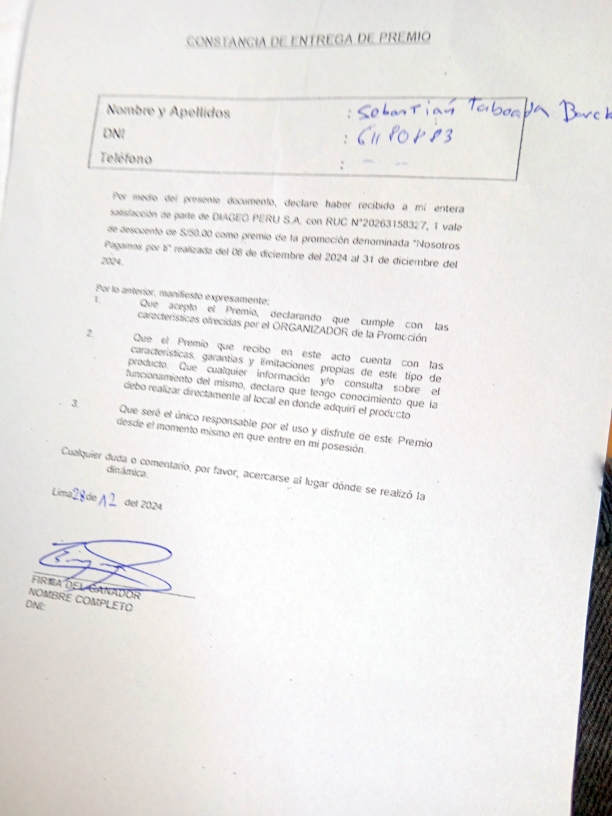 CONSTANCIA DE ENTREGA DE PREMIO
Nombre y Apellidos : Sebastián Taboada
DNI :
Teléfono : - -
Por medio del presente documento, declaro haber recibido a mi entera
satisfacción de parte de DIAGEO PERU S.A. con RUC N°20263158327, 1 vale
de descuento de S/50.00 como premio de la promoción denominada "Nosotros
Pagamos por ti" realizada del 06 de diciembre del 2024 al 31 de diciembre del
2024.
Por lo anterior, manifiesto expresamente:
1. Que acepto el Premio, declarando que cumple con las
características ofrecidas por el ORGANIZADOR de la Promoción
2. Que el Premio que recibo en este acto cuenta con las
características, garantías y limitaciones propias de este tipo de
producto. Que cualquier información y/o consulta sobre el
funcionamiento del mismo, declaro que tengo conocimiento que la
debo realizar directamente al local en donde adquirí el producto
3. Que seré el único responsable por el uso y disfrute de este Premio
desde el momento mismo en que entre en mi posesión.
Cualquier duda o comentario, por favor, acercarse al lugar dónde se realizó la
dinámica.
Lima 28 de 12 del 2024
FIRMA DEL GANADOR
NOMBRE COMPLETO
DNI: